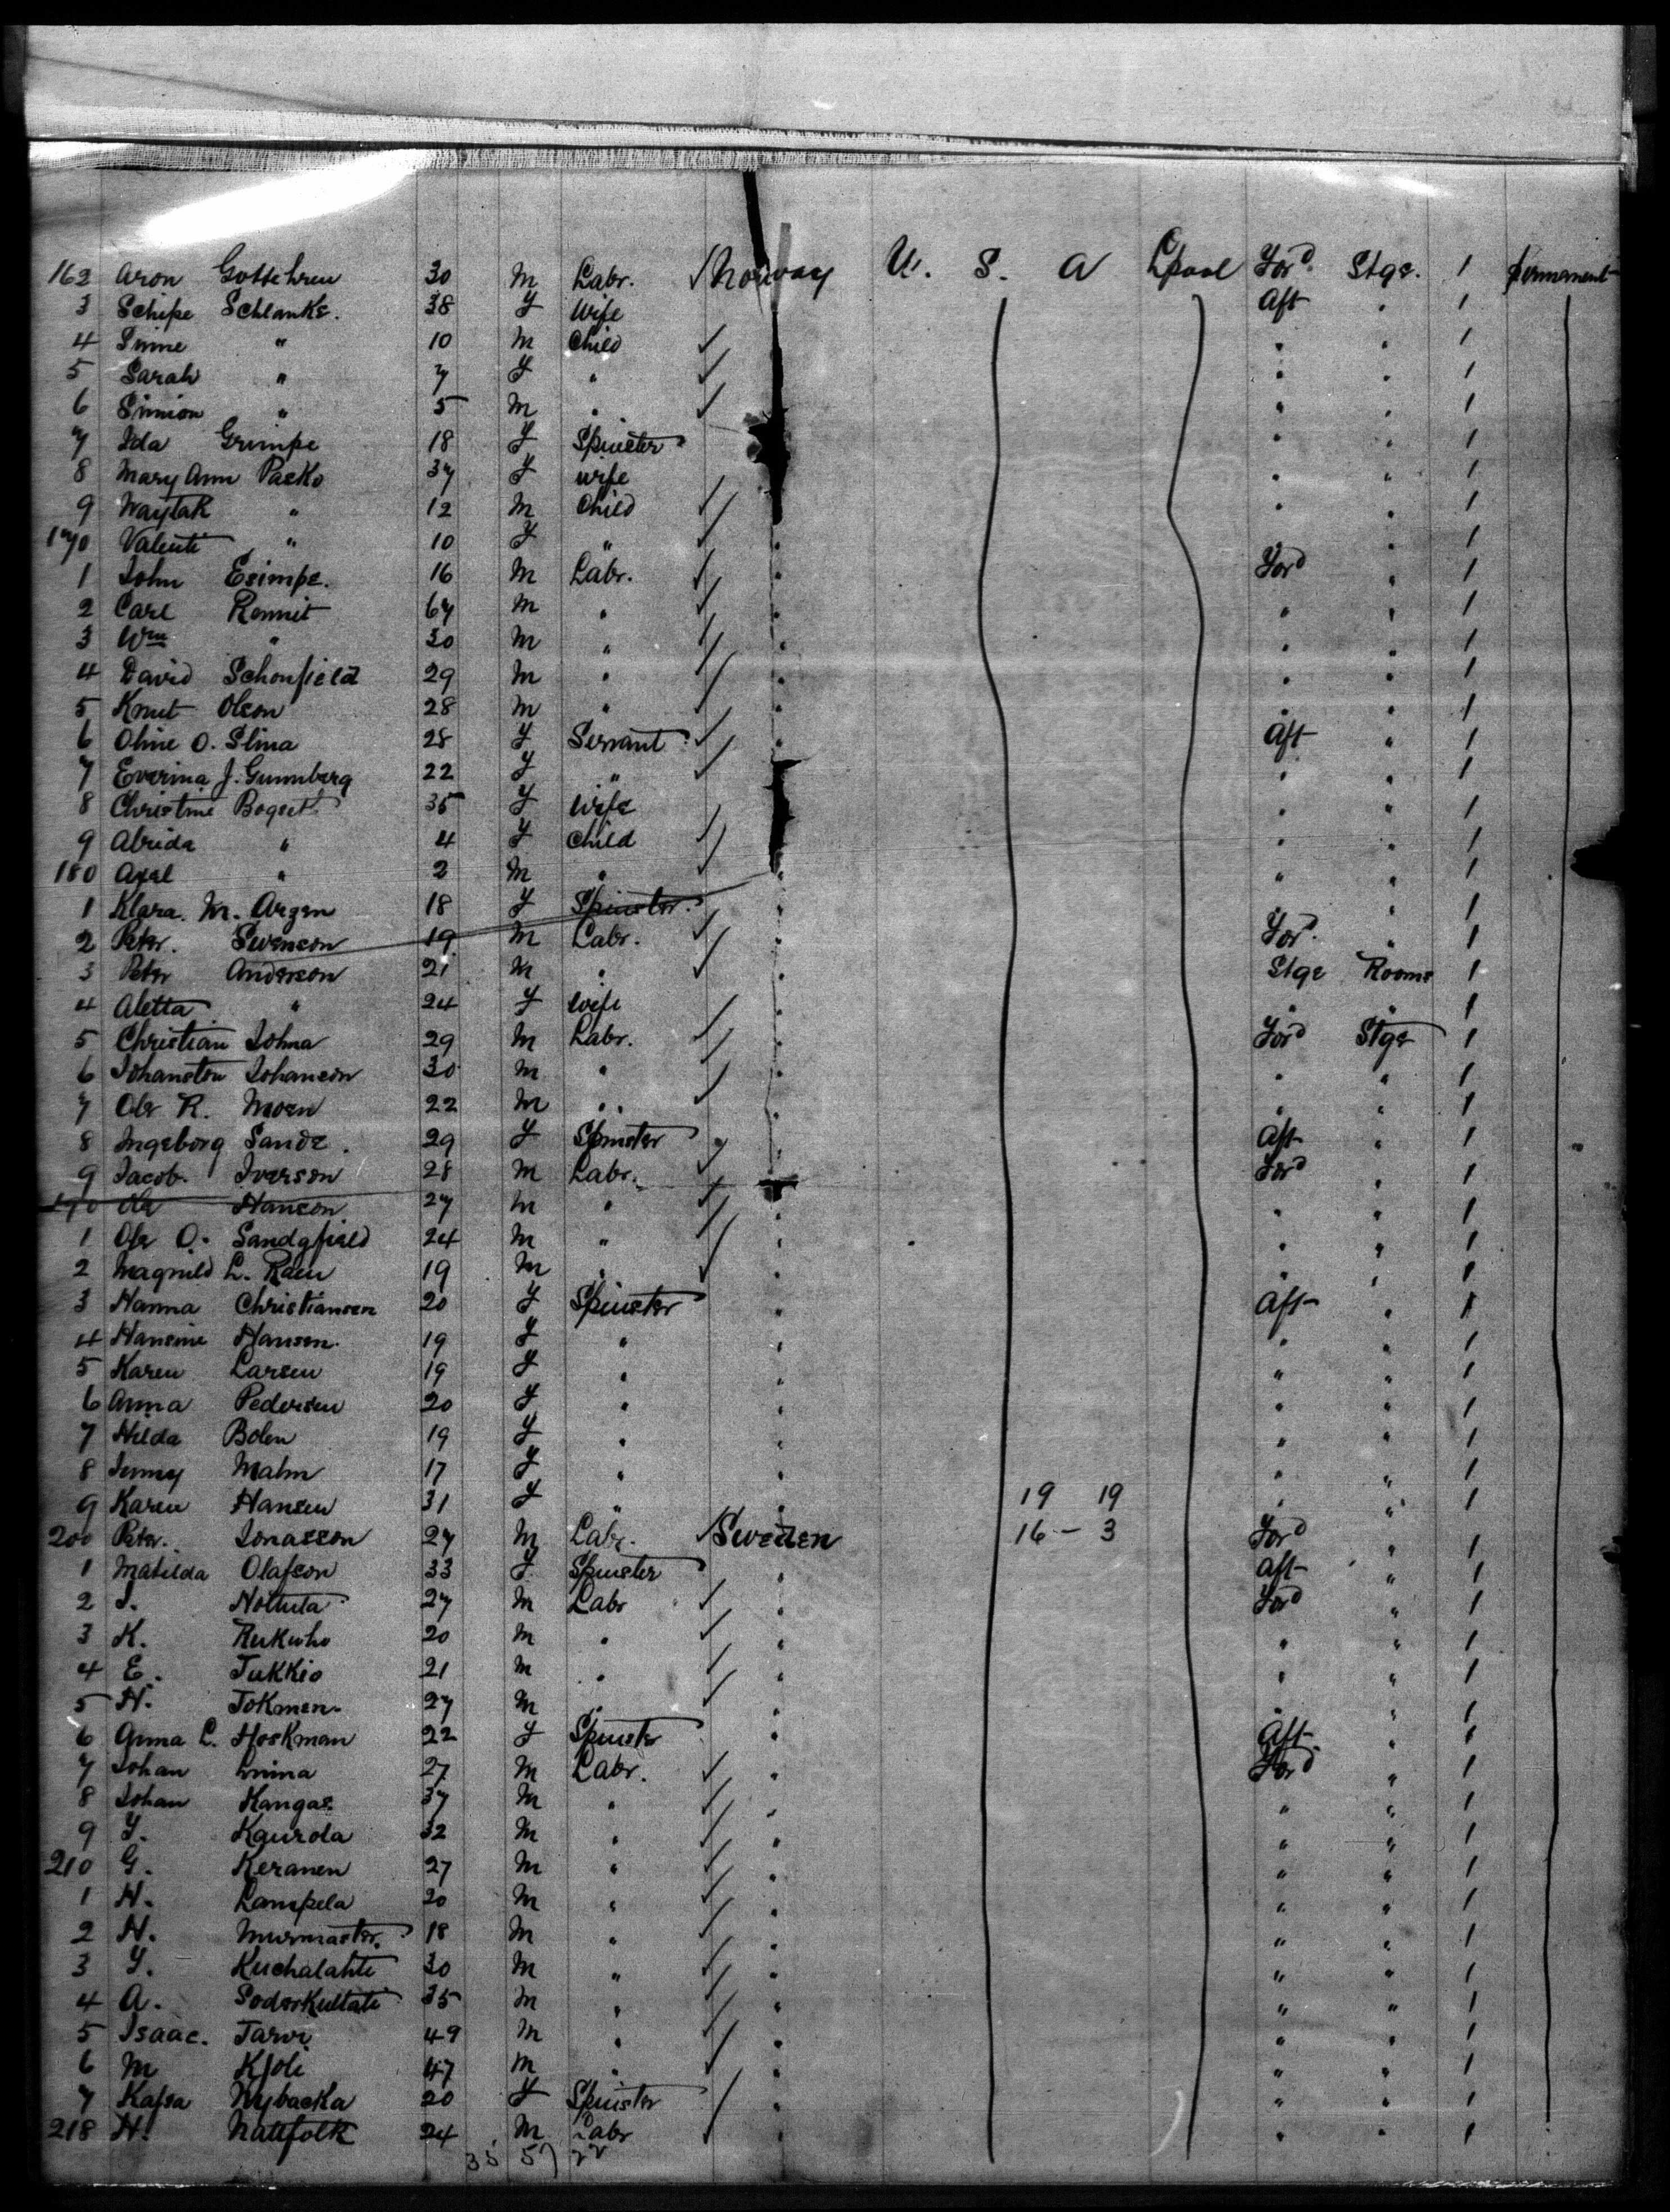 162 Aron Gottehrew 30 M Labr. Norway U. S. A Lpool For'd Stge. 1 permanent
3 Schipe Schlanke. 38 F Wife Aft " 1
4 Simne " 10 M Child " " 1
5 Sarah " 7 F " " " 1
6 Simion " 5 M " " " 1
7 Ida Grimpe 18 F Spinster " " 1
8 Mary Ann Packo 37 F wife " " 1
9 Waytak " 12 M Child " " 1
170 Valenti " 10 F " " " " 1
1 John Esimpe. 16 M Labr. " For'd " 1
2 Carl Rennit 67 M " " " " 1
3 Wm " 30 M " " " " 1
4 David Schonfield 29 M " " " " 1
5 Knut Olson 28 M " " " " 1
6 Oline O. Slina 28 F Servant " Aft " 1
7 Everina J. Gunnberg 22 F " " " 1
8 Christine Bogset 35 F Wife " " 1
9 Alrida " 4 F Child " " 1
180 Axel " 2 M " " " " 1
1 Klara. M. Argen 18 F Spinster. " " 1
2 Peter. Swenson 19 M Labr. " For'd. " 1
3 Peter Anderson 21 M " " Stge Rooms 1
4 Aletta " 24 F wife " " " 1
5 Christian Johna 29 M Labr. " For'd Stge 1
6 Johanston Johanson 30 M " " " " 1
7 Ole R. Moen 22 M " " " " 1
8 Ingeborg Sande. 29 F Spinster Aft " 1
9 Jacob. Iverson 28 M Labr. For'd " 1
190 Ole Hanson 27 M " " " " 1
1 Ole O. Sandgfield 24 M " " " " 1
2 Magnild L. Raen 19 M " " " " 1
3 Hanna Christiansen 20 F Spinster " Aft " 1
4 Hansine Hansen. 19 F " " " " 1
5 Karen Larsen 19 F " " " " 1
6 Anna Pedersen 20 F " " " " 1
7 Hilda Bolen 19 F " " " " 1
8 Jenny Malm 17 F " " " " 1
9 Karen Hansen 31 F " " 19 19 " " 1
200 Peter. Jonasson 27 M Labr. Sweden 16 - 3 For'd " 1
1 Matilda Olafson 33 F. Spinster " Aft " 1
2 J. Nottuta 27 M Labr " For'd " 1
3 K. Rukuho 20 M " " " " 1
4 E. Tukkio 21 M " " " " 1
5 H. Tokmen. 27 M " " " " 1
6 Anna L. Hoskman 22 F Spinster " Aft. " 1
7 Johan Linna 27 M Labr. " For'd " 1
8 Johan Kangas 37 M " " " " 1
9 Y. Kaurola 32 M " " " " 1
210 G. Keranen 27 M " " " " 1
1 H. Lampela 20 M " " " " 1
2 H. Murmaster. 18 M " " " " 1
3 Y. Kuchalahti 30 M " " " " 1
4 A. Soderkultati 35 M " " " " 1
5 Isaac. Jarvi 49 M " " " " 1
6 M Kjoli 47 M " " " " 1
7 Kajsa Nybacka 20 F Spinster " " " 1
218 H. Natifolk 24 M Labr " " " 1
35 57 22